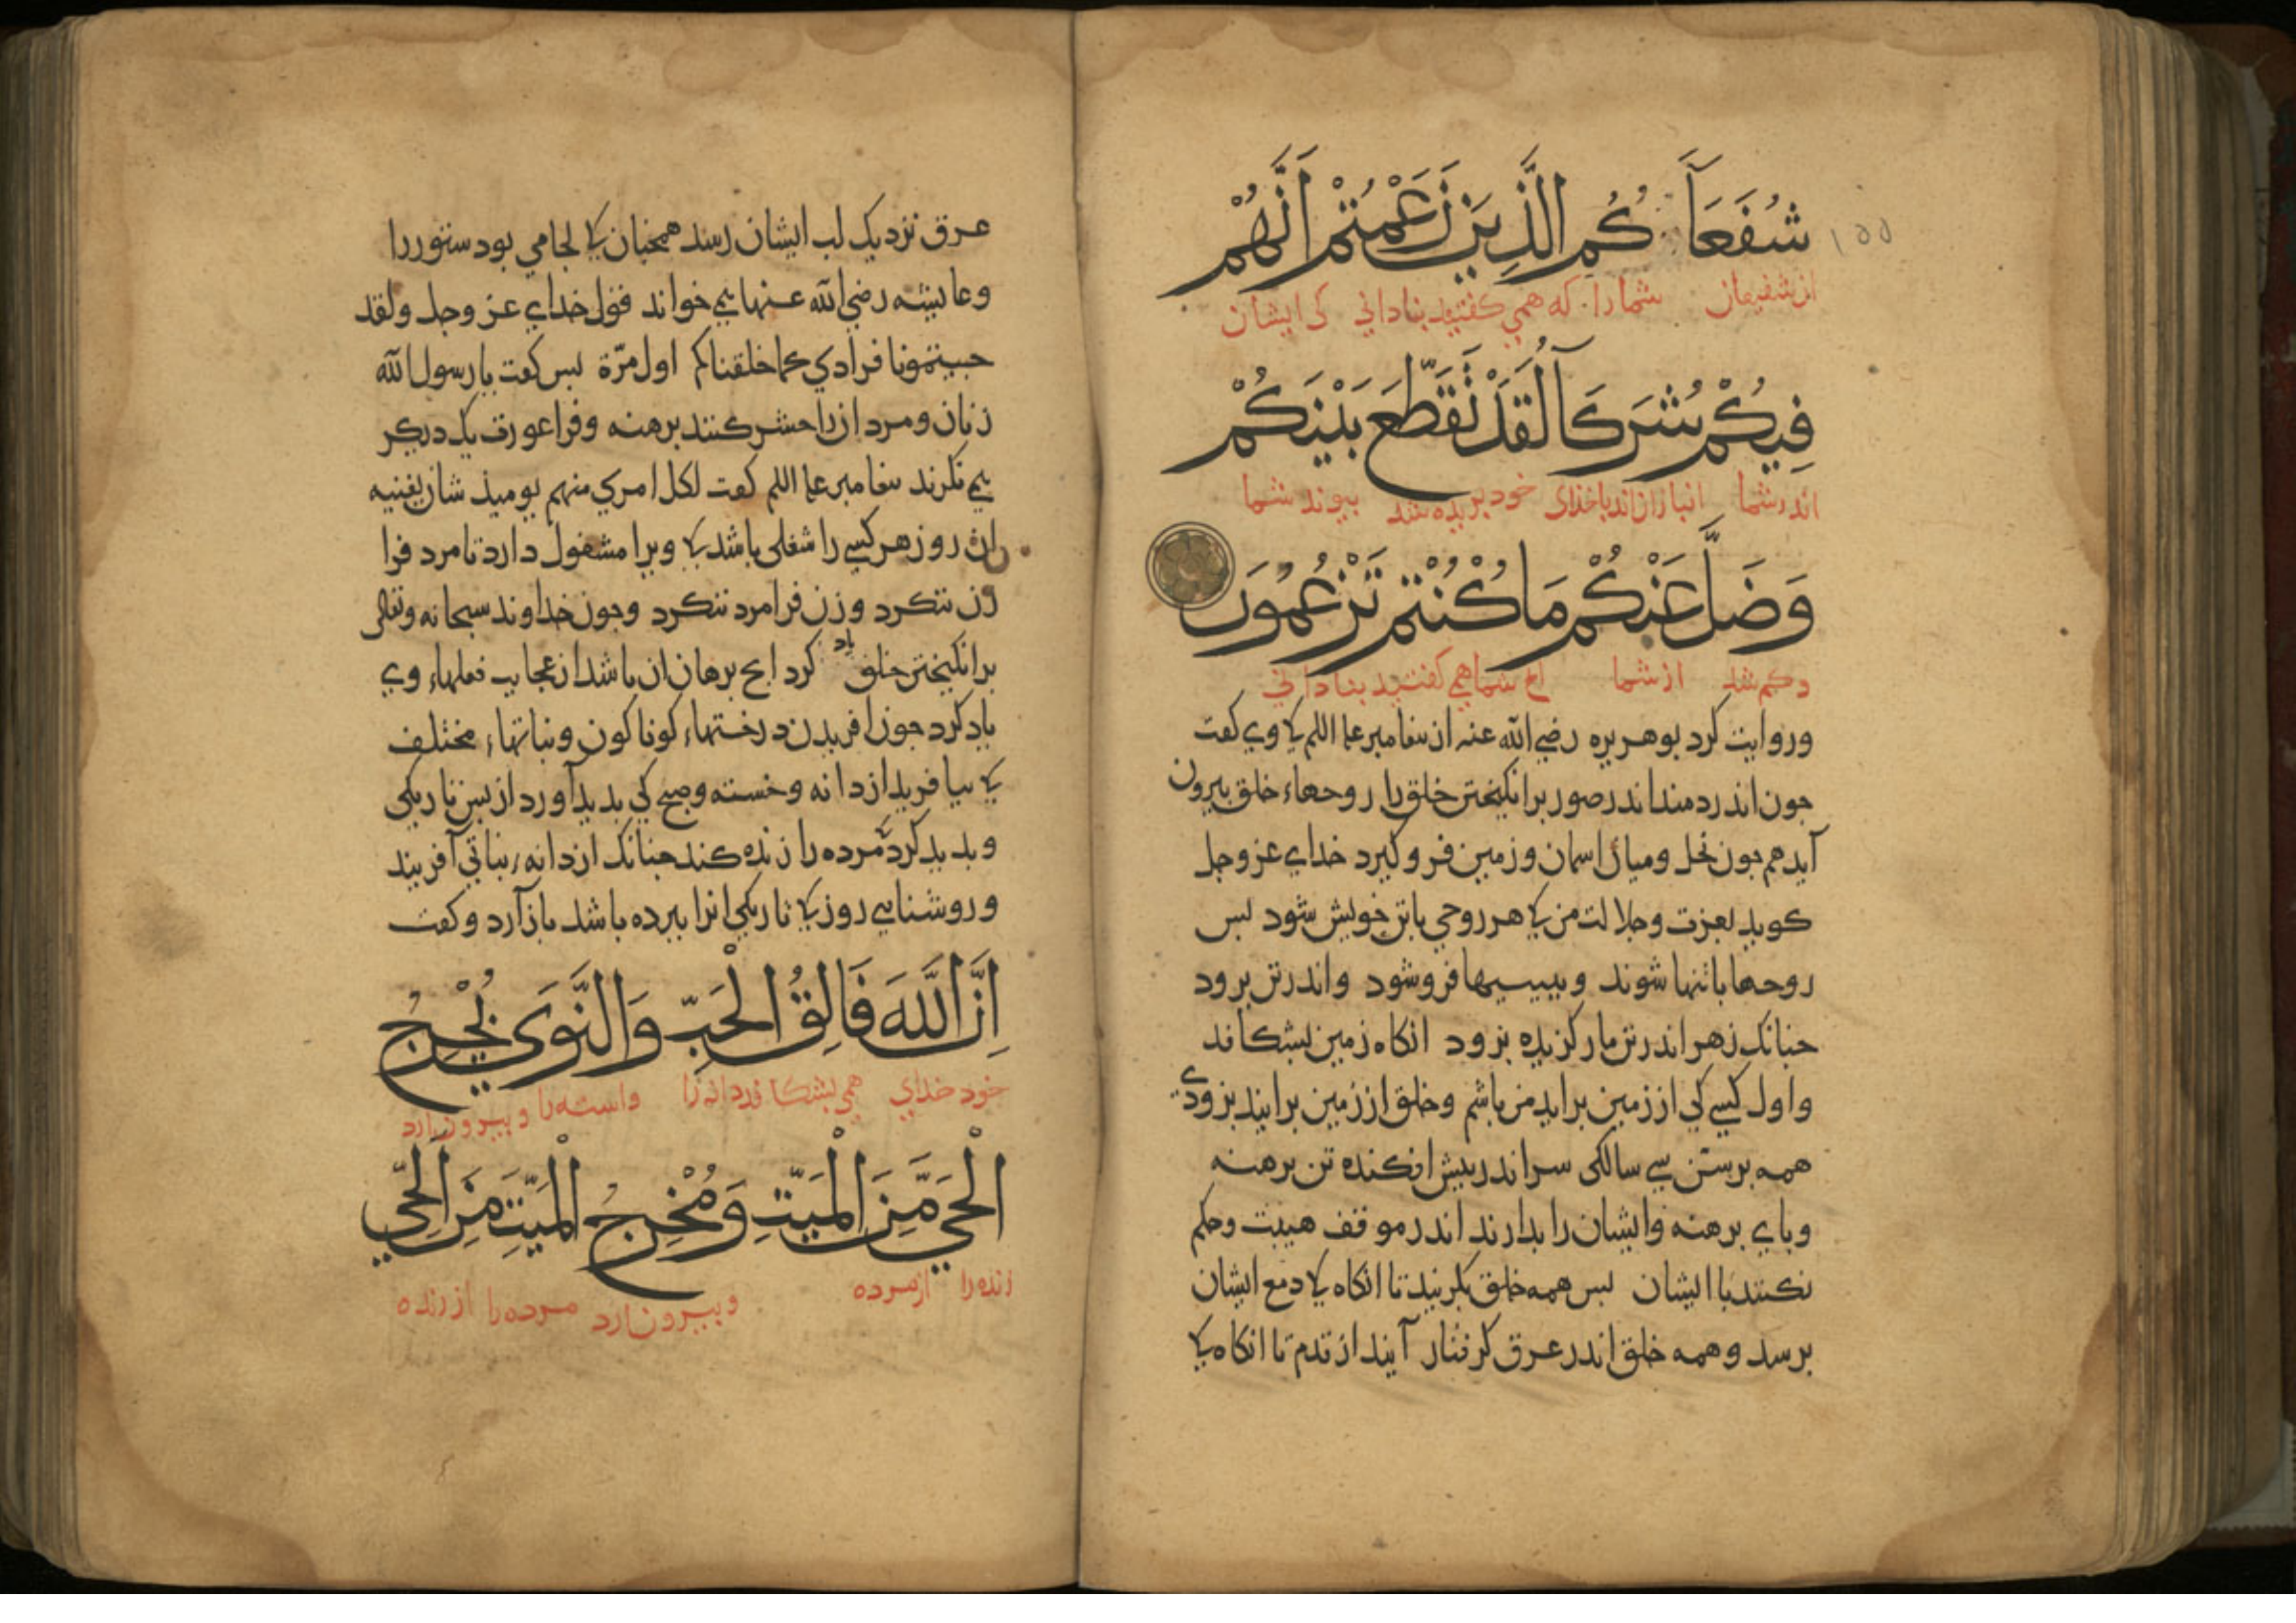 شُفَعَآءَكُمُ الَّذِينَ زَعَمْتُمْ اَنَّهُمْ
١٥٥
از شفیعان شما را که همی کفتید بنادانی کی ایشان
فِيكُمْ شُرَكَآءُ لَقَدْ تَقَطَّعَ بَيْنَكُمْ
اندر شما انبازان اند با خدای خود بریده شد بیوند شما
وَضَلَّ عَنْكُمْ مَا كُنْتُمْ تَزْعُمُونَ
و کم شد از شما انج شما همی کفتید بنادانی
وروایت کرد بوهریره رضی الله عنه از بیغامبر علیه السلم کی وی کفت
جون اندر دمند اندر صور برانکیختن خلق را روحهاء خلق بیرون
آید هم جون نحل ومیان اسمان وزمین فرو کیرد خدای عز وجل
کوید بعزت وجلالت من کی هر روحی باتن خویش شود بس
روحها باتنها شوند وببینیها فروشود واندر تن برود
جنانک زهر اندر تن مار کزیده برود انکاه زمین بشکافد
واول کسی کی از زمین براید من باشم وخلق از زمین برایند بزودی
همه برسن سی سالکی سر اندر بیش افکنده تن برهنه
وبای برهنه وایشان را بدارند اندر موقف هیبت وحکم
نکنند با ایشان بس همه خلق بکریند تا انکاه کی دمع ایشان
برسد وهمه خلق اندر عرق کرفتار آیند از قدم تا انکاه کی
عرق نزدیک لب ایشان رسد همجنان کی لجامی بود ستور را
وعایشه رضی الله عنها می خواند قول خدای عز وجل ولقد
جیتمونا فرادی کما خلقناکم اول مرّة بس کفت یا رسول الله
زنان ومردان را حشر کنند برهنه وفرا عورت یک دیکر
می نکرند بیغامبر علیه السلم کفت لکل امری منهم یومیذ شان یغنیه
ان روز هر کسی را شغلی باشد کی ویرا مشغول دارد تا مرد فرا
زن ننکرد وزن فرا مرد ننکرد وجون خداوند سبحانه وتعالی
برانکیختن خلق یاد کرد انج برهان ان باشد از عجایب فعلهاء وی
یاد کرد جون افریدن درختهاء کوناکون ونباتهاء مختلف
کی بیافرید از دانه وخسته وصبح کی بدید آورد از بس تاریکی
وبدید کرد مرده را زنده کند جنانک از دانه نباتی آفریند
وروشنایی روز کی تاریکی انرا ببرده باشد باز آرد وکفت
اِنَّ اللَّهَ فَالِقُ الْحَبِّ وَالنَّوَى يُخْرِجُ
خود خدای همی بشکافد دانه را واسته را و بیرون ارد
الْحَيَّ مِنَ الْمَيِّتِ وَمُخْرِجُ الْمَيِّتِ مِنَ الْحَيِّ
زنده را از مرده و بیرون ارد مرده را از زنده